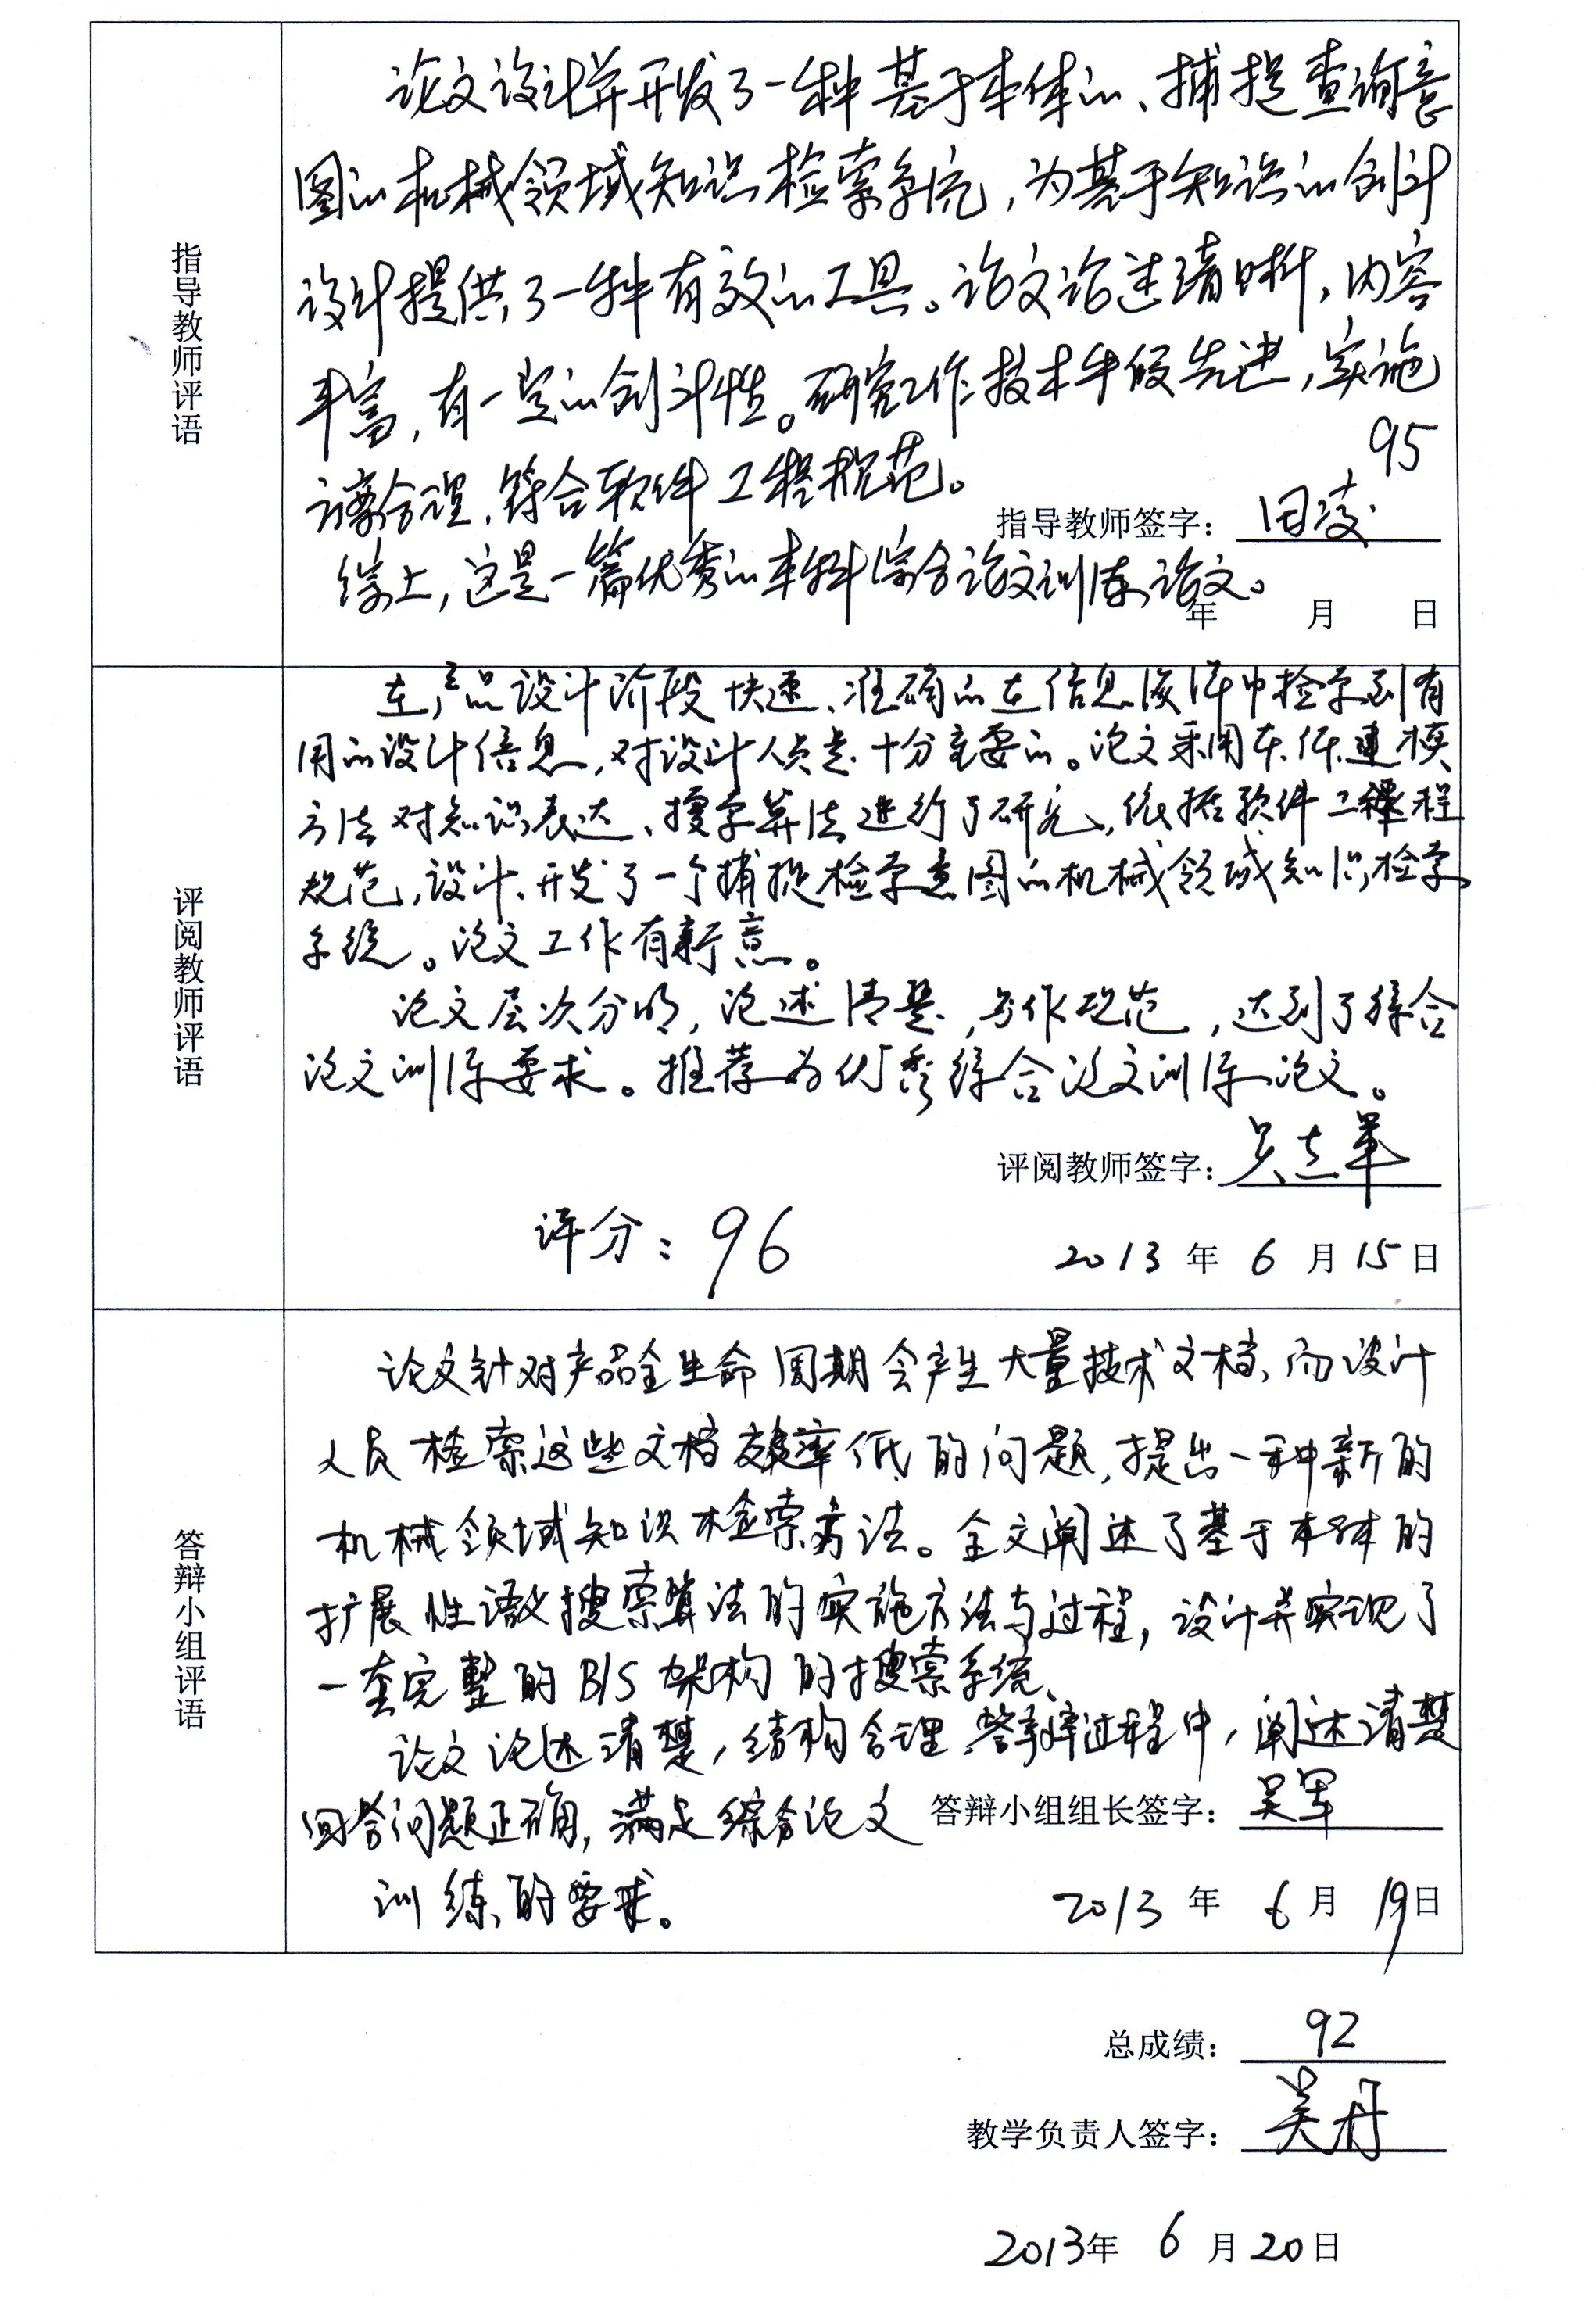 指导教师评语
论文设计并开发了一种基于本体的、捕捉查询意
图的机械领域知识检索系统，为基于知识的创新
设计提供了一种有效的工具。论文论述清晰，内容
丰富，有一定的创新性。研究工作技术手段先进，实施
方案合理，符合软件工程规范。
95
指导教师签字：田凌
综上，这是一篇优秀的本科综合论文训练论文。
年 月 日
评阅教师评语
在产品设计阶段快速、准确的在信息海洋中检索到有
用的设计信息，对设计人员是十分重要的。论文采用本体建模
方法对知识表达、搜索算法进行了研究，依据软件工程
规范，设计、开发了一个捕捉检索意图的机械领域知识检索
系统。论文工作有新意。
论文层次分明，论述清楚，写作规范，达到了综合
论文训练要求。推荐为优秀综合论文训练论文。
评阅教师签字：吴志军
评分：96
2013 年 6 月 15 日
答辩小组评语
论文针对产品全生命周期会产生大量技术文档，而设计
人员检索这些文档效率低的问题，提出一种新的
机械领域知识检索方法。全文阐述了基于本体的
扩展性语义搜索算法的实施方法与过程，设计并实现了
一套完整的B/S架构的搜索系统。
论文论述清楚，结构合理，答辩过程中，阐述清楚
回答问题正确，满足综合论文
答辩小组组长签字：吴军
训练的要求。
2013 年 6 月 19 日
总成绩：92
教学负责人签字：吴丹
2013年 6 月 20 日